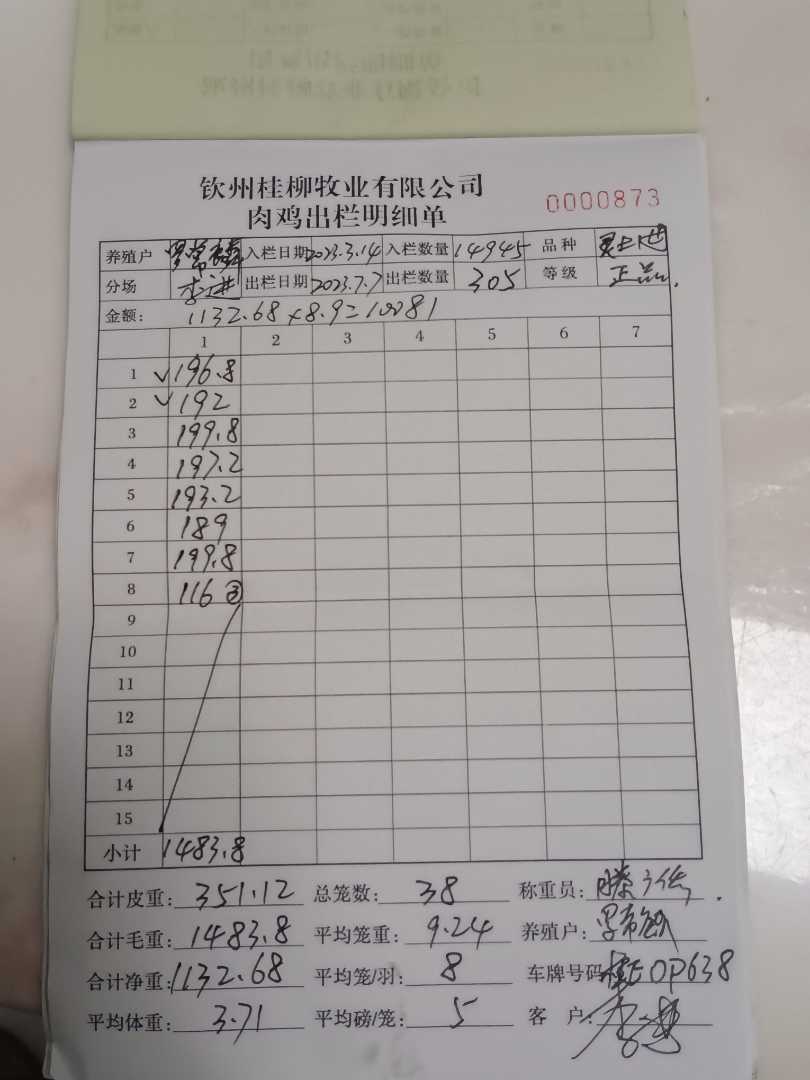 钦州桂柳牧业有限公司
肉鸡出栏明细单
0000873
养殖户 入栏日期 2023.3.14 入栏数量 14945 品种
分场 李进 出栏日期 2023.7.7 出栏数量 305 等级 正品
金额: 1132.68×8.9=10081
1 2 3 4 5 6 7
1 ✓196.8
2 ✓192
3 199.8
4 197.2
5 193.2
6 189
7 199.8
8 116 ③
9
10
11
12
13
14
15
小计 1483.8
合计皮重: 351.12 总笼数: 38 称重员:
合计毛重: 1483.8 平均笼重: 9.24 养殖户:
合计净重: 1132.68 平均笼/羽: 8 车牌号码: 桂E0P638
平均体重: 3.71 平均磅/笼: 5 客 户: